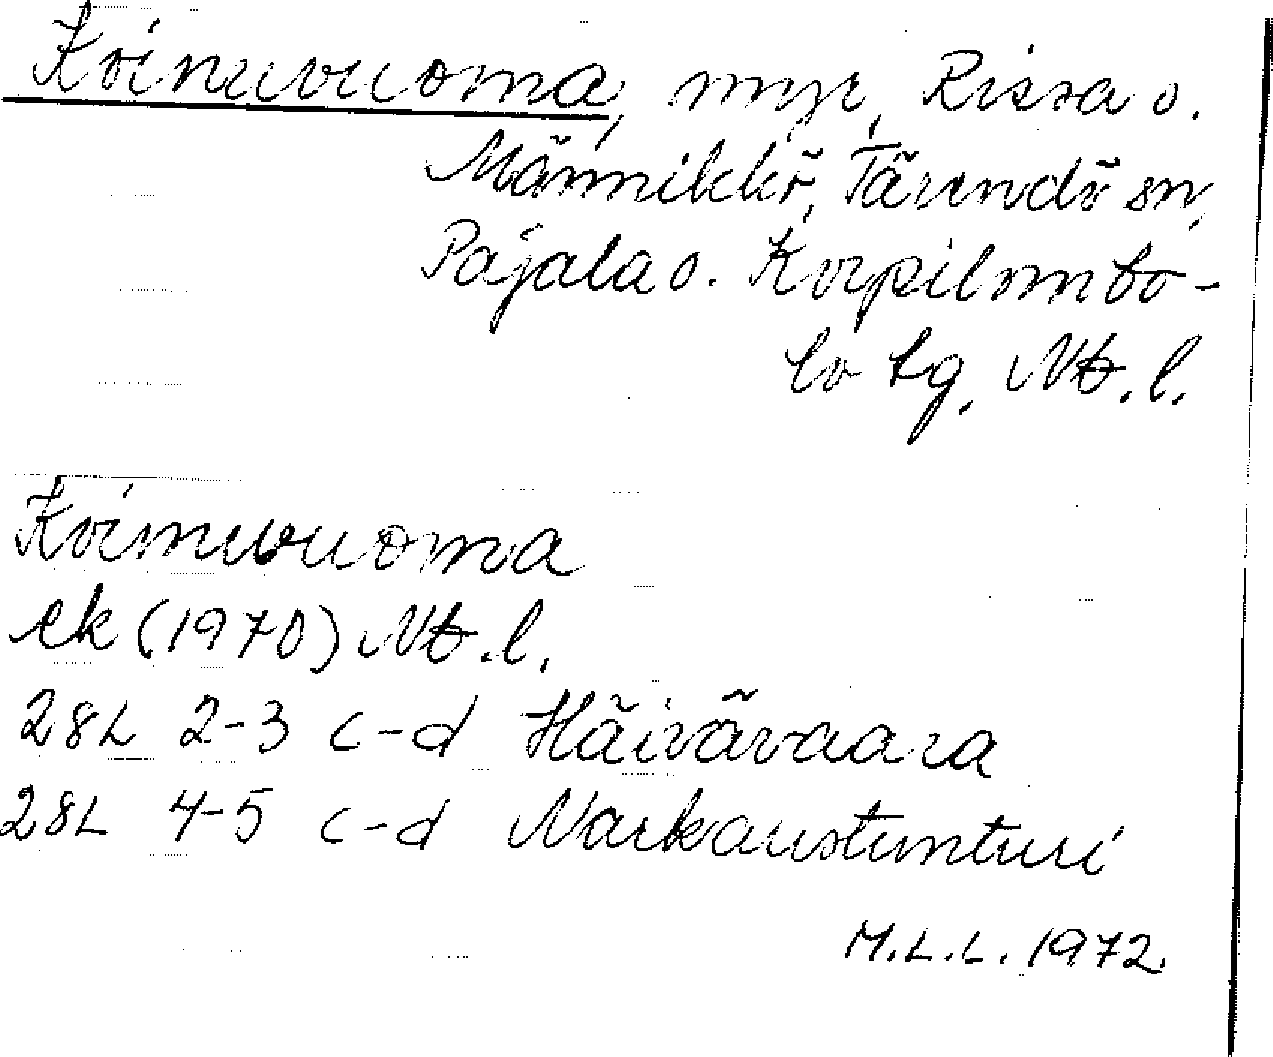 Koinuvuoma, myr, Rissa o.
Männikkö, Tärendö sn,
Pajala o. Korpilombo-
lo tg. Nb.l.
Koinuvuoma
ek (1970) Nb.l.
28L 2-3 c-d Häivävaara
28L 4-5 c-d Narkaustunturi
M.L.L. 1972.